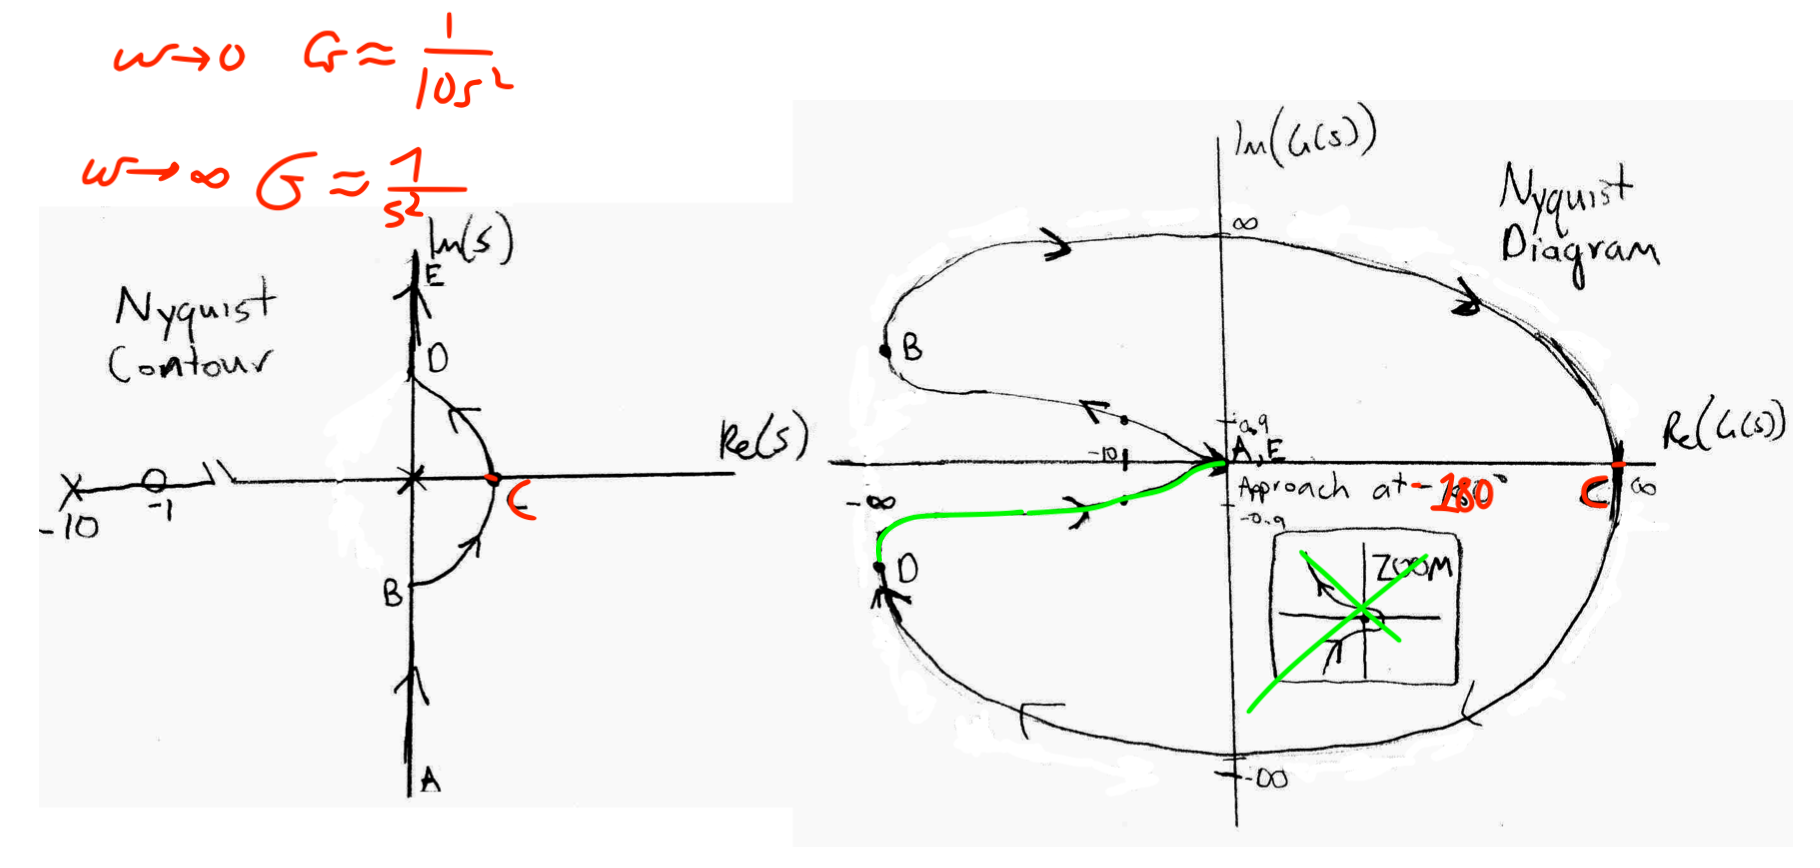 w→0 G≈ 1/10s²
w→∞ G≈ 1/s²
Im(s)
E
Nyquist
Contour
D
Re(s)
-10
-1
C
B
A
Im(G(s))
Nyquist
Diagram
∞
B
Re(G(s))
0.9
-10
A, E
-∞
Approach at -180°
C
∞
-0.9
D
ZOOM
-∞